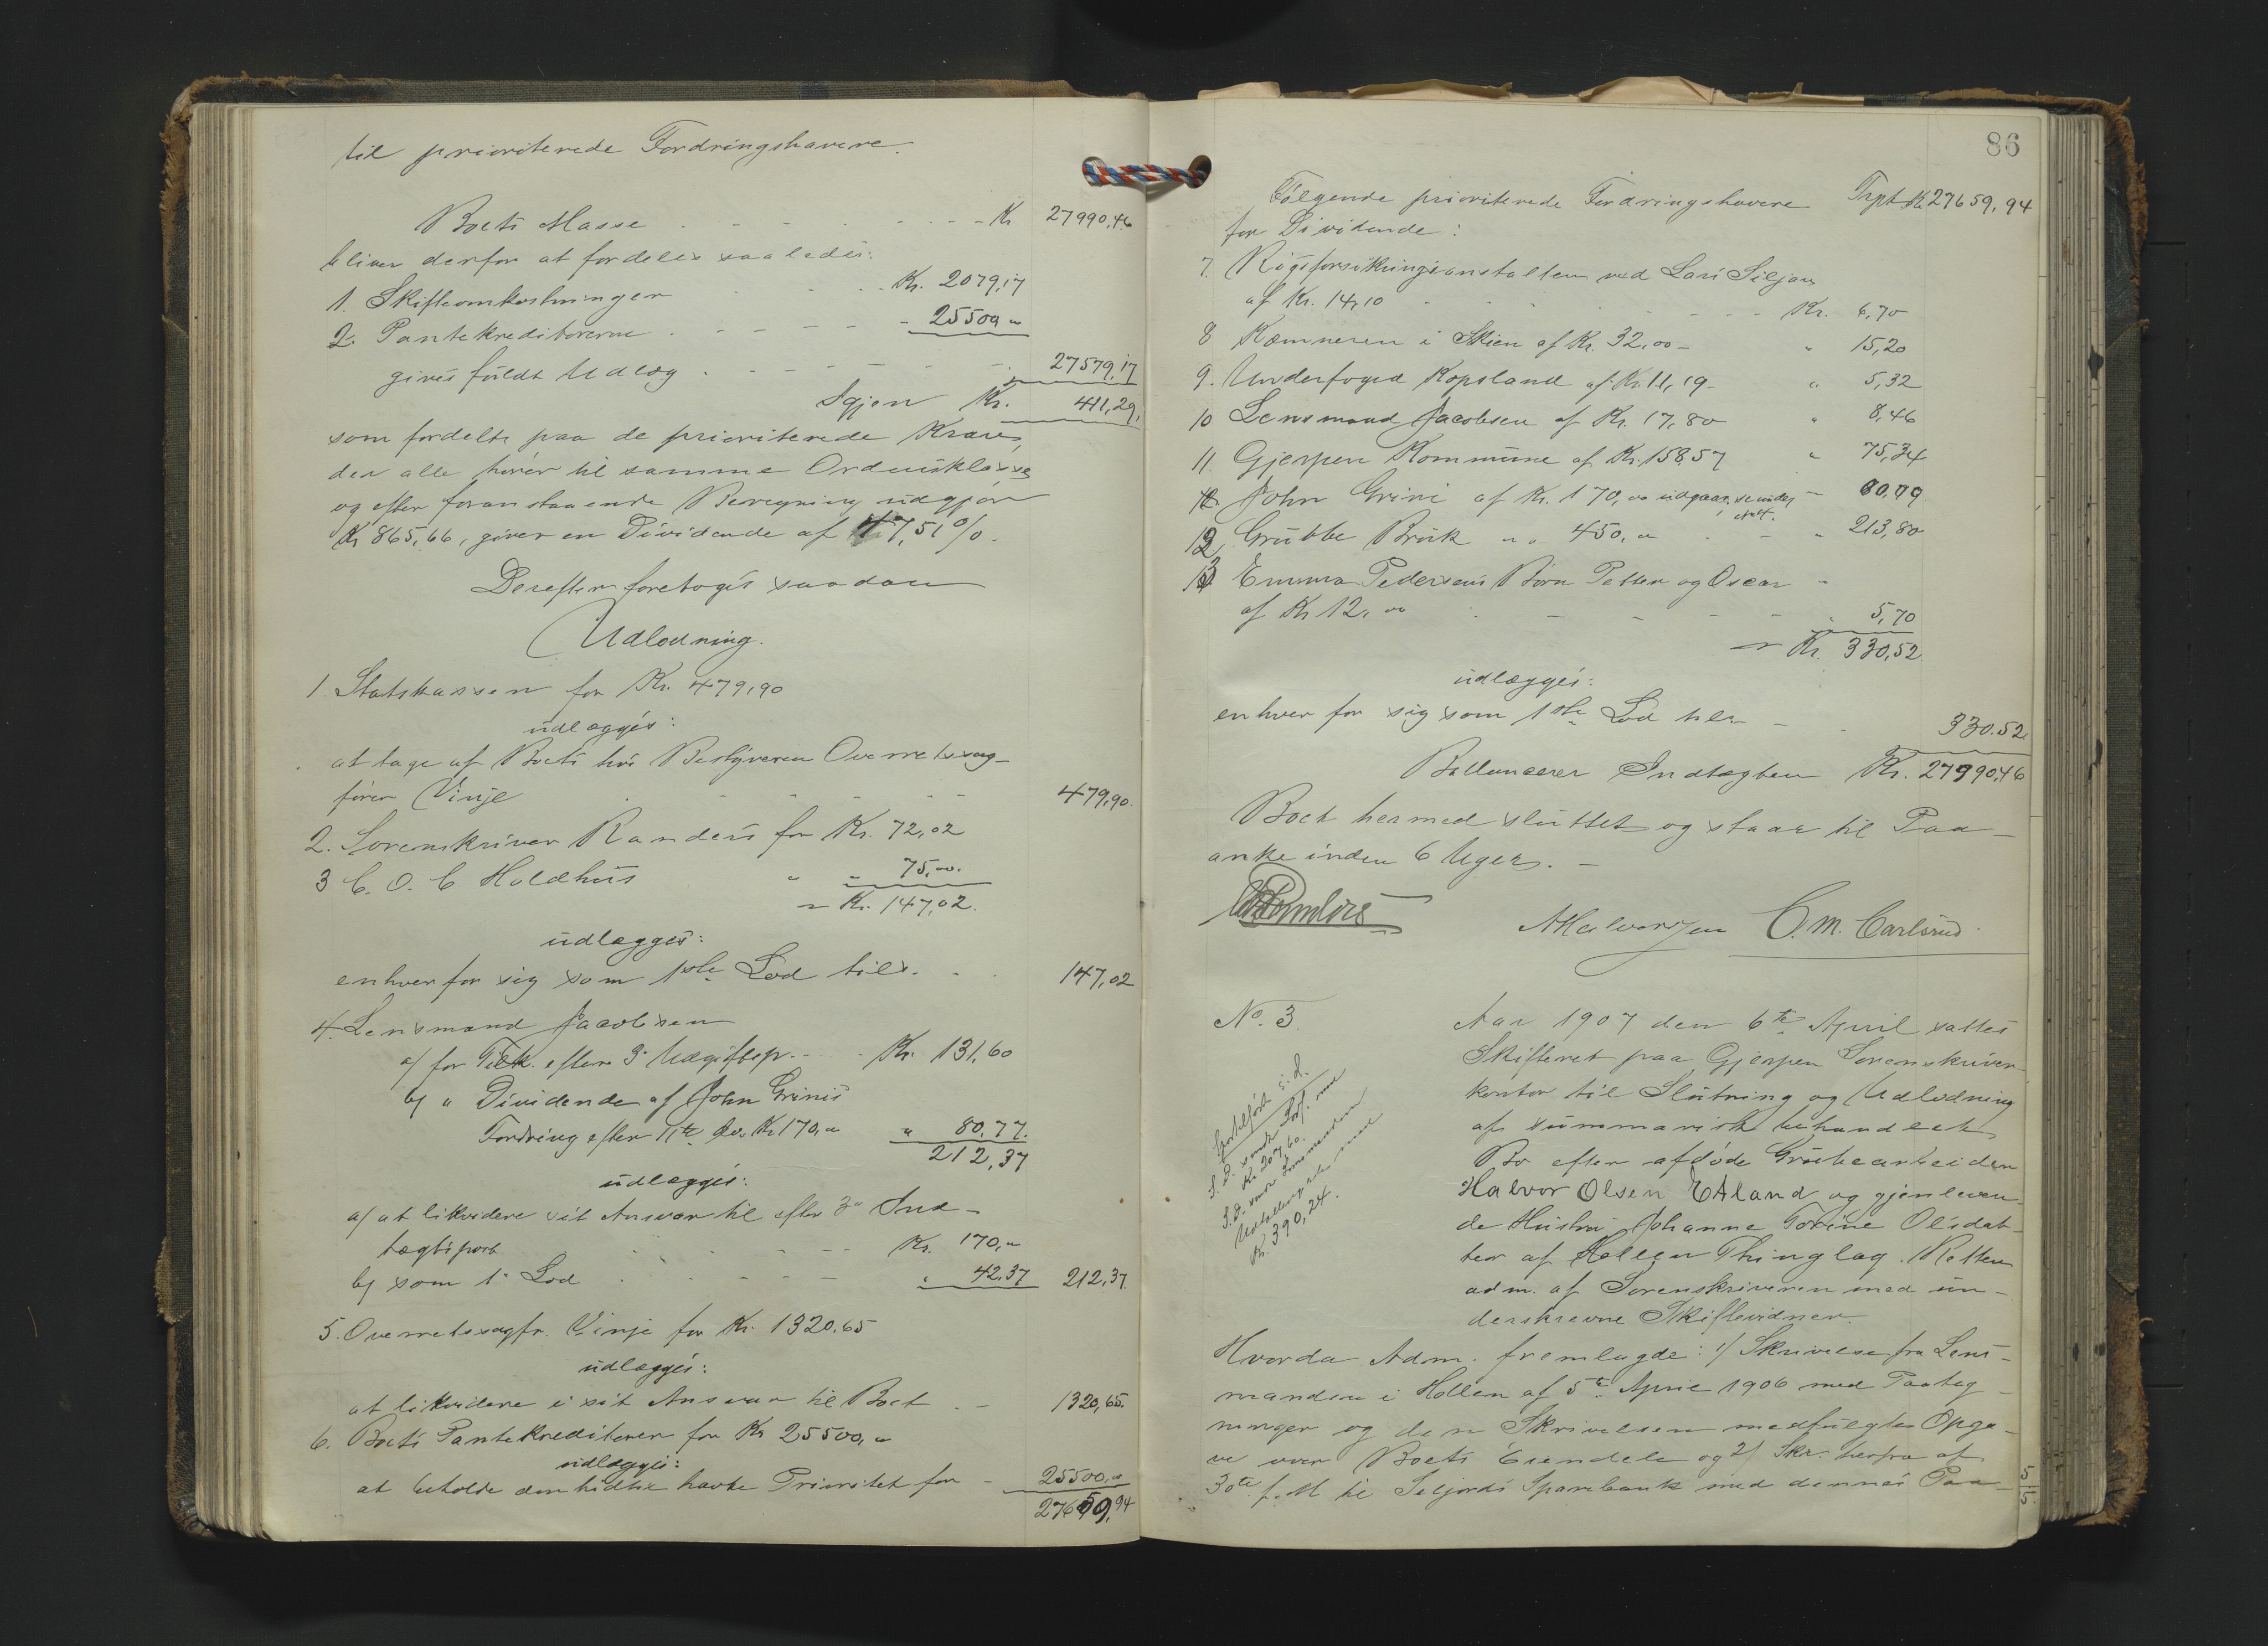 til prioriterede Fordringshavere.
Boets Masse - - - - Kr 27990,46
bliver derfor at fordeles saaledes:
1. Skifteomkostninger - - Kr. 2079,17
2. Pantekreditorerne - - - - - 25500 "
gives fuldt Udlæg - - - - - 27579,17
Igjen Kr. 411,29,
som fordelt paa de prioriterede Krav,
der alle hører til samme Ordensklasse
og efter foranstaaende Beregning udgjør
Kr 865,66, giver en Dividende af 47,51 %.
Derefter foretoges saadan
Udlodning.
1. Statskassen for Kr. 479,90
udlægges:
at tage af Boets hos Bestyreren Overretssag-
fører Vinje - - - - 479,90.
2. Sorenskriver Randers for Kr. 72,02
3 C. O. C Holdhus " " 75,00.
= Kr. 147,02.
udlægges:
enhver for sig som 1ste Lod tils. - - 147,02
4. Lensmand Jacobsen
a/ for Tilk. efter 3. Udgiftsp. - - Kr. 131,60
b/ " Dividende af John Grinis
Fordring efter 11te do. Kr 170, " " 80,77.
212,37
udlægges:
a/ at likvidere sit Ansvar til efter 3die Ind-
tægtspost - - - - Kr. 170, "
b/ som 1. Lod - - - - " 42,37 212,37.
5. Overretssagfr. Vinje for Kr. 1320,65
udlægges:
at likvidere i sit Ansvar til Boet - - 1320,65.
6. Boets Pantekreditorer for Kr 25500, "
udlægges:
at beholde den hidtil havte Prioritet for - 25500, "
27659,94
86
Følgende prioriterede Fordringshavere Trspt Kr 27659,94
for Dividende:
7. Rigsforsikringsanstalten ved Lars Siljan
af Kr. 14,10 - - - - - Kr. 6,70
8 Kæmneren i Skien af Kr. 32,00 - " 15,20
9. Underfoged Kopsland af Kr. 11,19 - " 5,32
10 Lensmand Jacobsen af Kr. 17,80 " 8,46
11. Gjerpen Kommune af Kr. 158,57 " 75,34
John Grini af Kr. 170, " udgaar, se under - 80,79
12 Grubbe Bruk " " 450, " - - " 213,80
13 Emma Pedersens Børn Petter og Oscar -
af Kr 12,00 - - - - - 5,70
= Kr. 330,52
udlægges:
enhver for sig som 1ste Lod tils. - 330.52.
Ballancerer Indtægten Kr. 27990,46
Boet hermed sluttet og staar til Paa-
anke inden 6 Uger. -
AHalvorsen C. M. Carlsrud.
No. 3.
Aar 1907 den 6te April sattes
Skifteret paa Gjerpen Sorenskriver-
kontor til Slutning og Udlodning
af summarisk behandlet
Bo efter afdøde Grubearbeider
Halvor Olsen Eland og gjenleven-
de Hustru Johanne Torine Olsdat-
ter af Hollen Thinglag. Retten
adm. af Sorenskriveren med un-
derskrevne Skiftevidner.
S. D. sendt
Kr. 207,60.
Kr. 390,24.
Hvorda Adm. fremlagde: 1/ Skrivelse fra Lens-
manden i Hollen af 5te April 1906 med Paateg-
ninger og den Skrivelsen medfulgte Opga-
ve over Boets Eiendele og 2/ Skr. herfra af
30te f. M til Seljords Sparebank med dennes Paa-
5
5.